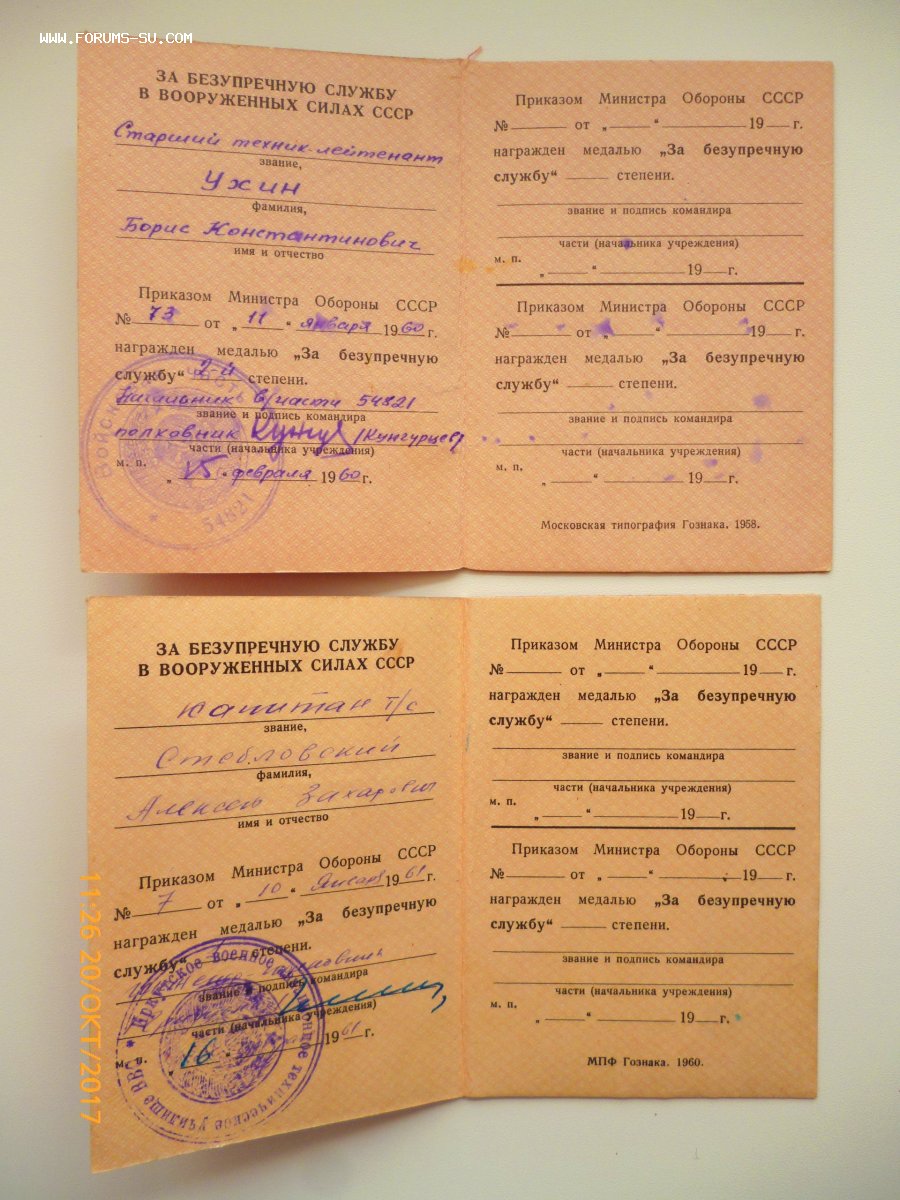 www.forums-su.com
ЗА БЕЗУПРЕЧНУЮ СЛУЖБУ
В ВООРУЖЕННЫХ СИЛАХ СССР
Старший техник-лейтенант
звание,
Ужин
фамилия,
Борис Константинович
имя и отчество
Приказом Министра Обороны СССР
№ 73 от „ 11 “ января 1960 г.
награжден медалью „За безупречную
службу“ 2-й степени.
Начальник в/части 54821
звание и подпись командира
полковник (Кунгурцев)
части (начальника учреждения)
м. п.
„ 15 “ февраля 1960 г.
54821
Приказом Министра Обороны СССР
№ от „ “ 19 г.
награжден медалью „За безупречную
службу“ степени.
звание и подпись командира
части (начальника учреждения)
м. п.
„ “ 19 г.
Приказом Министра Обороны СССР
№ от „ “ 19 г.
награжден медалью „За безупречную
службу“ степени.
звание и подпись командира
части (начальника учреждения)
м. п.
„ “ 19 г.
Московская типография Гознака. 1958.
ЗА БЕЗУПРЕЧНУЮ СЛУЖБУ
В ВООРУЖЕННЫХ СИЛАХ СССР
капитан т/с
звание,
Стебловский
фамилия,
Алексей Захарович
имя и отчество
Приказом Министра Обороны СССР
№ 7 от „ 10 “ января 1961 г.
награжден медалью „За безупречную
службу“ степени.
звание и подпись командира
части (начальника учреждения)
м. п.
„ 16 “ 1961 г.
Иркутское военное техническое училище ВВС
Приказом Министра Обороны СССР
№ от „ “ 19 г.
награжден медалью „За безупречную
службу“ степени.
звание и подпись командира
части (начальника учреждения)
м. п.
„ “ 19 г.
Приказом Министра Обороны СССР
№ от „ “ 19 г.
награжден медалью „За безупречную
службу“ степени.
звание и подпись командира
части (начальника учреждения)
м. п.
„ “ 19 г.
МПФ Гознака. 1960.
11:26 20/ОКТ/2017